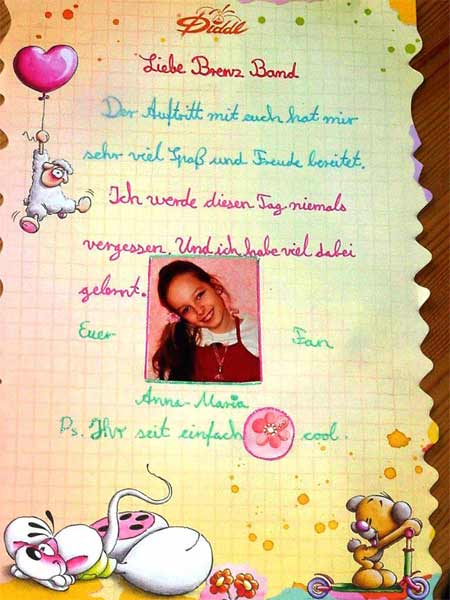 Diddl
Liebe Brenz Band
Der Auftritt mit euch hat mir
sehr viel Spaß und Freude bereitet.
Ich werde diesen Tag niemals
vergessen. Und ich habe viel dabei
gelernt.
Euer Fan
Anna-Maria
Ps. Ihr seit einfach cool.